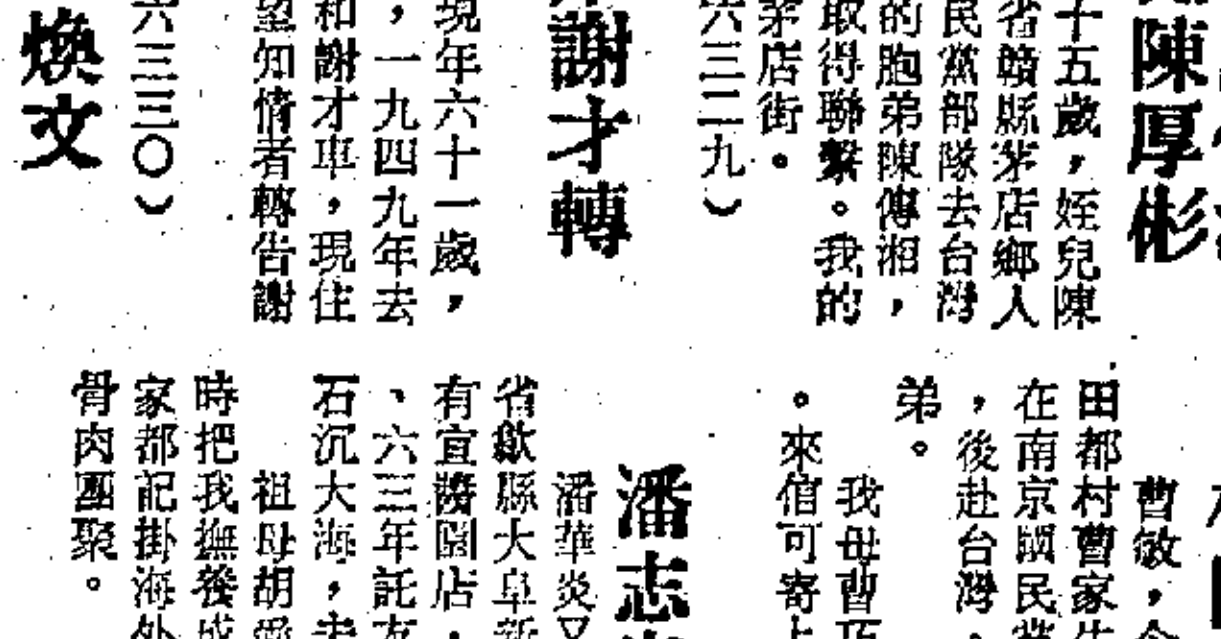 陳厚彬
十五歲，姪兒陳
省贛縣茅店鄉人
民黨部隊去台灣
的胞弟陳傳湘，
取得聯繫。我的
茅店街。
六三二九）
謝才轉
現年六十一歲，
，一九四九年去
和謝才車，現住
望知情者轉告謝
六三三〇）
煥文
曹敏，
田都村曹家
在南京國民黨
，後赴台灣，
弟。
我母曹
。來信可寄上
潘志
潘華炎又
省歙縣大阜新
有宜醬園店，
、六三年託友
石沉大海，
祖母胡愛
時把我撫養成
家都記掛海外
骨肉團聚。